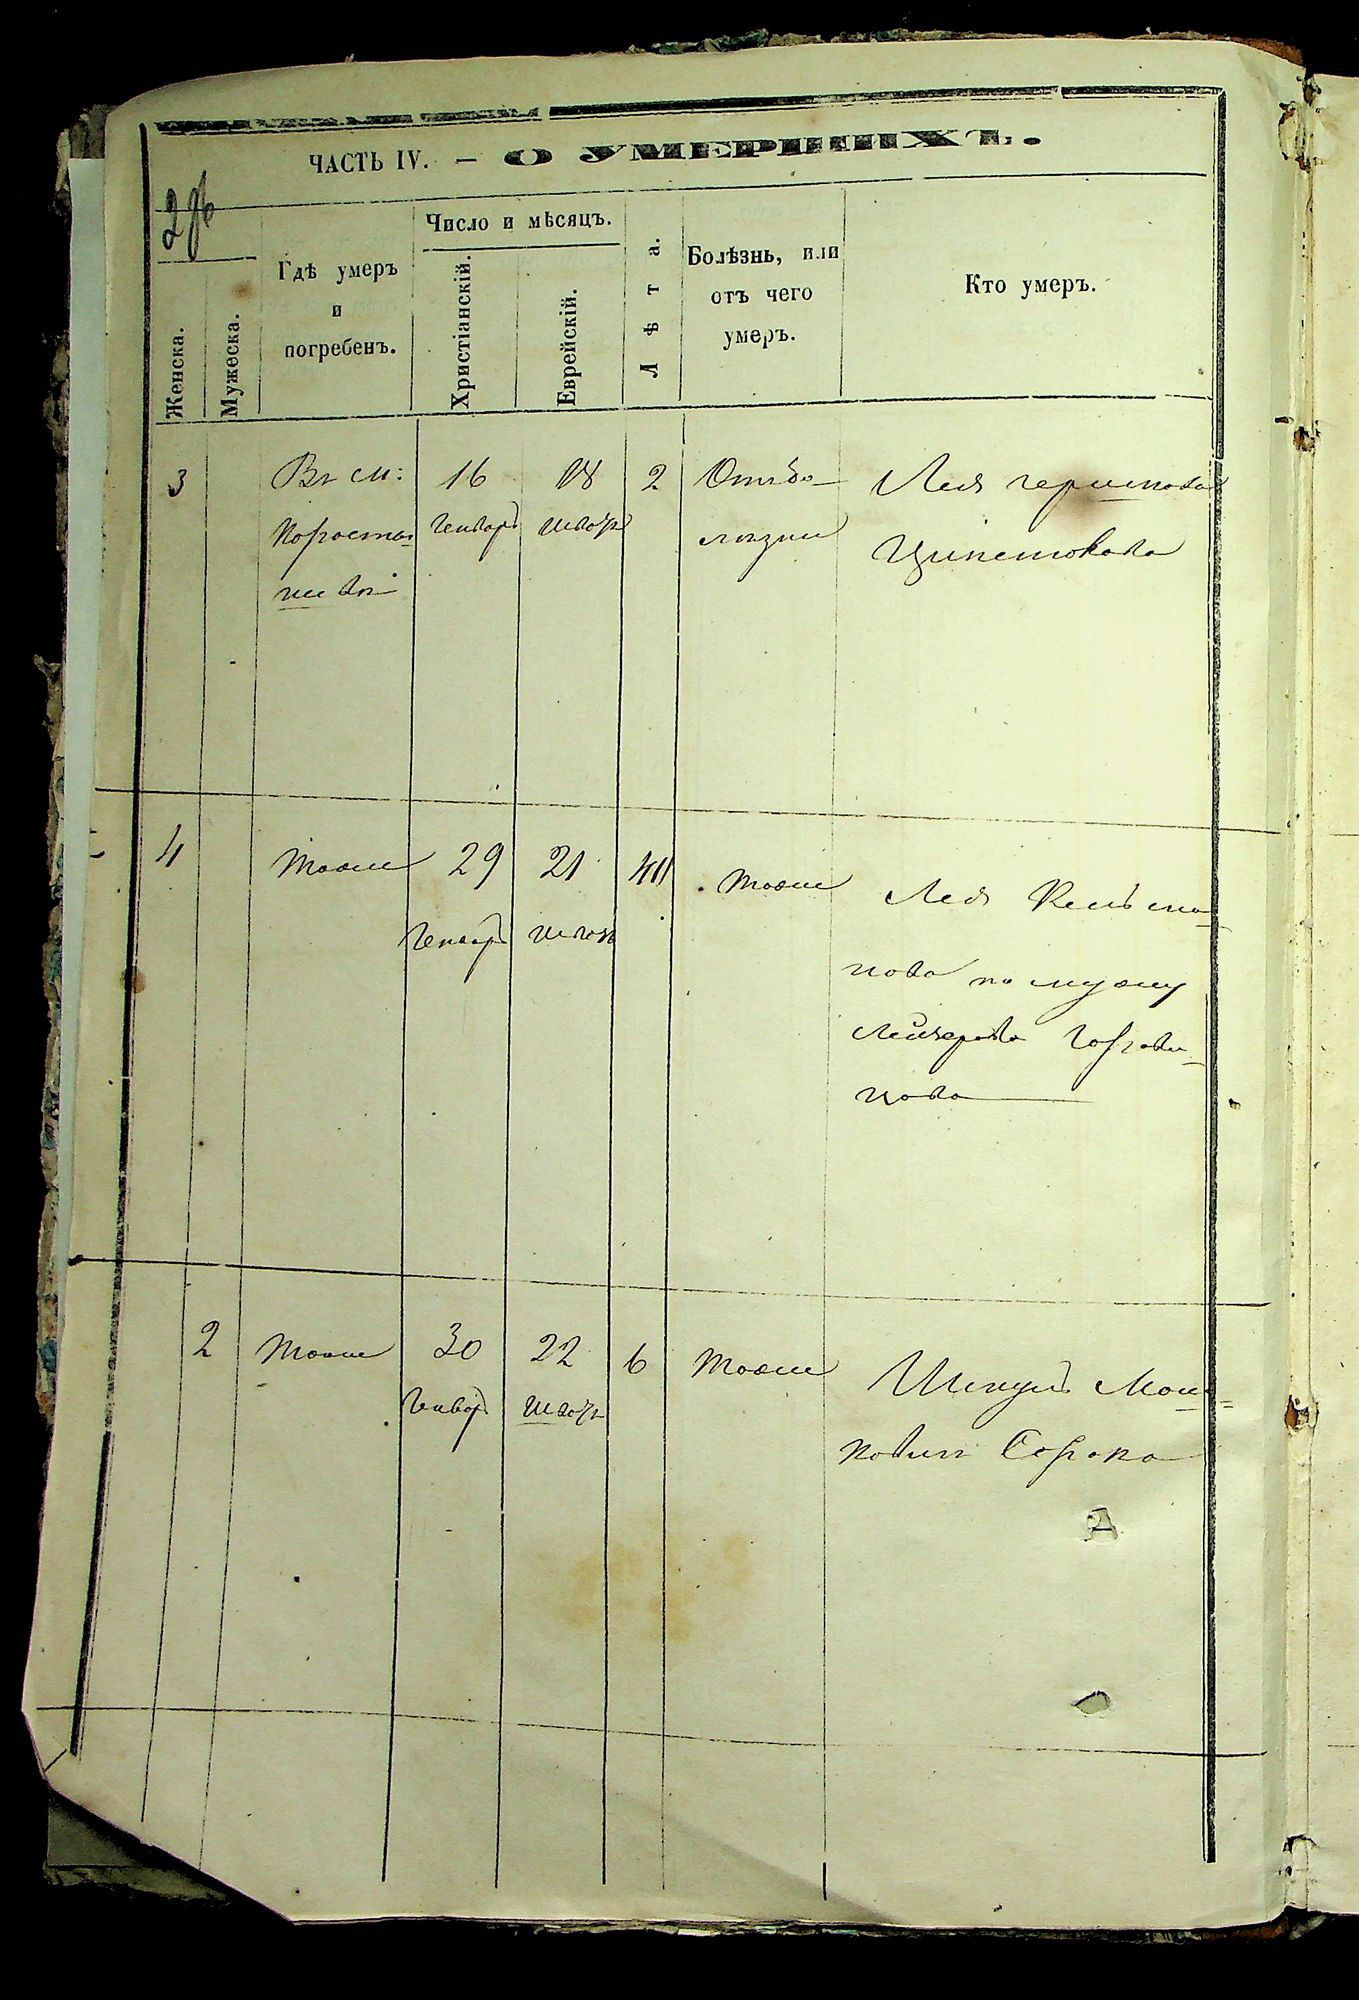 ЧАСТЬ IV. — О УМЕРШИХЪ.
Женска.
Мужеска.
Гдѣ умеръ
и
погребенъ.
Число и мѣсяцъ.
Христіанскій.
Еврейскій.
Лѣта.
Болѣзнь, или
отъ чего
умеръ.
Кто умеръ.
3
Въ м:
Коросты-
шевѣ
16
Генваръ
18
Шватъ
2
Отъ бо-
лѣзни
Лея Гершкова
4
Тоже
29
Генваръ
21
Шватъ
Тоже
Лея
нова по мужу
Лейзерова
нова
2
Тоже
30
Генваръ
22
Шватъ
6
Тоже
Мош-
ковичъ Сорока